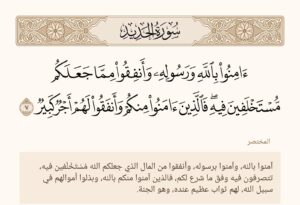 سُورَةُ الْحَدِيدِ
ءَامِنُوا۟ بِٱللَّهِ وَرَسُولِهِۦ وَأَنفِقُوا۟ مِمَّا جَعَلَكُم
مُّسْتَخْلَفِينَ فِيهِ ۖ فَٱلَّذِينَ ءَامَنُوا۟ مِنكُمْ وَأَنفَقُوا۟ لَهُمْ أَجْرٌ كَبِيرٌ ٧
المختصر
آمنوا بالله، وآمنوا برسوله، وأنفقوا من المال الذي جعلكم الله مُسْتَخْلفين فيه،
تتصرفون فيه وفق ما شرع لكم، فالذين آمنوا منكم بالله، وبذلوا أموالهم في
سبيل الله، لهم ثواب عظيم عنده، وهو الجنة.